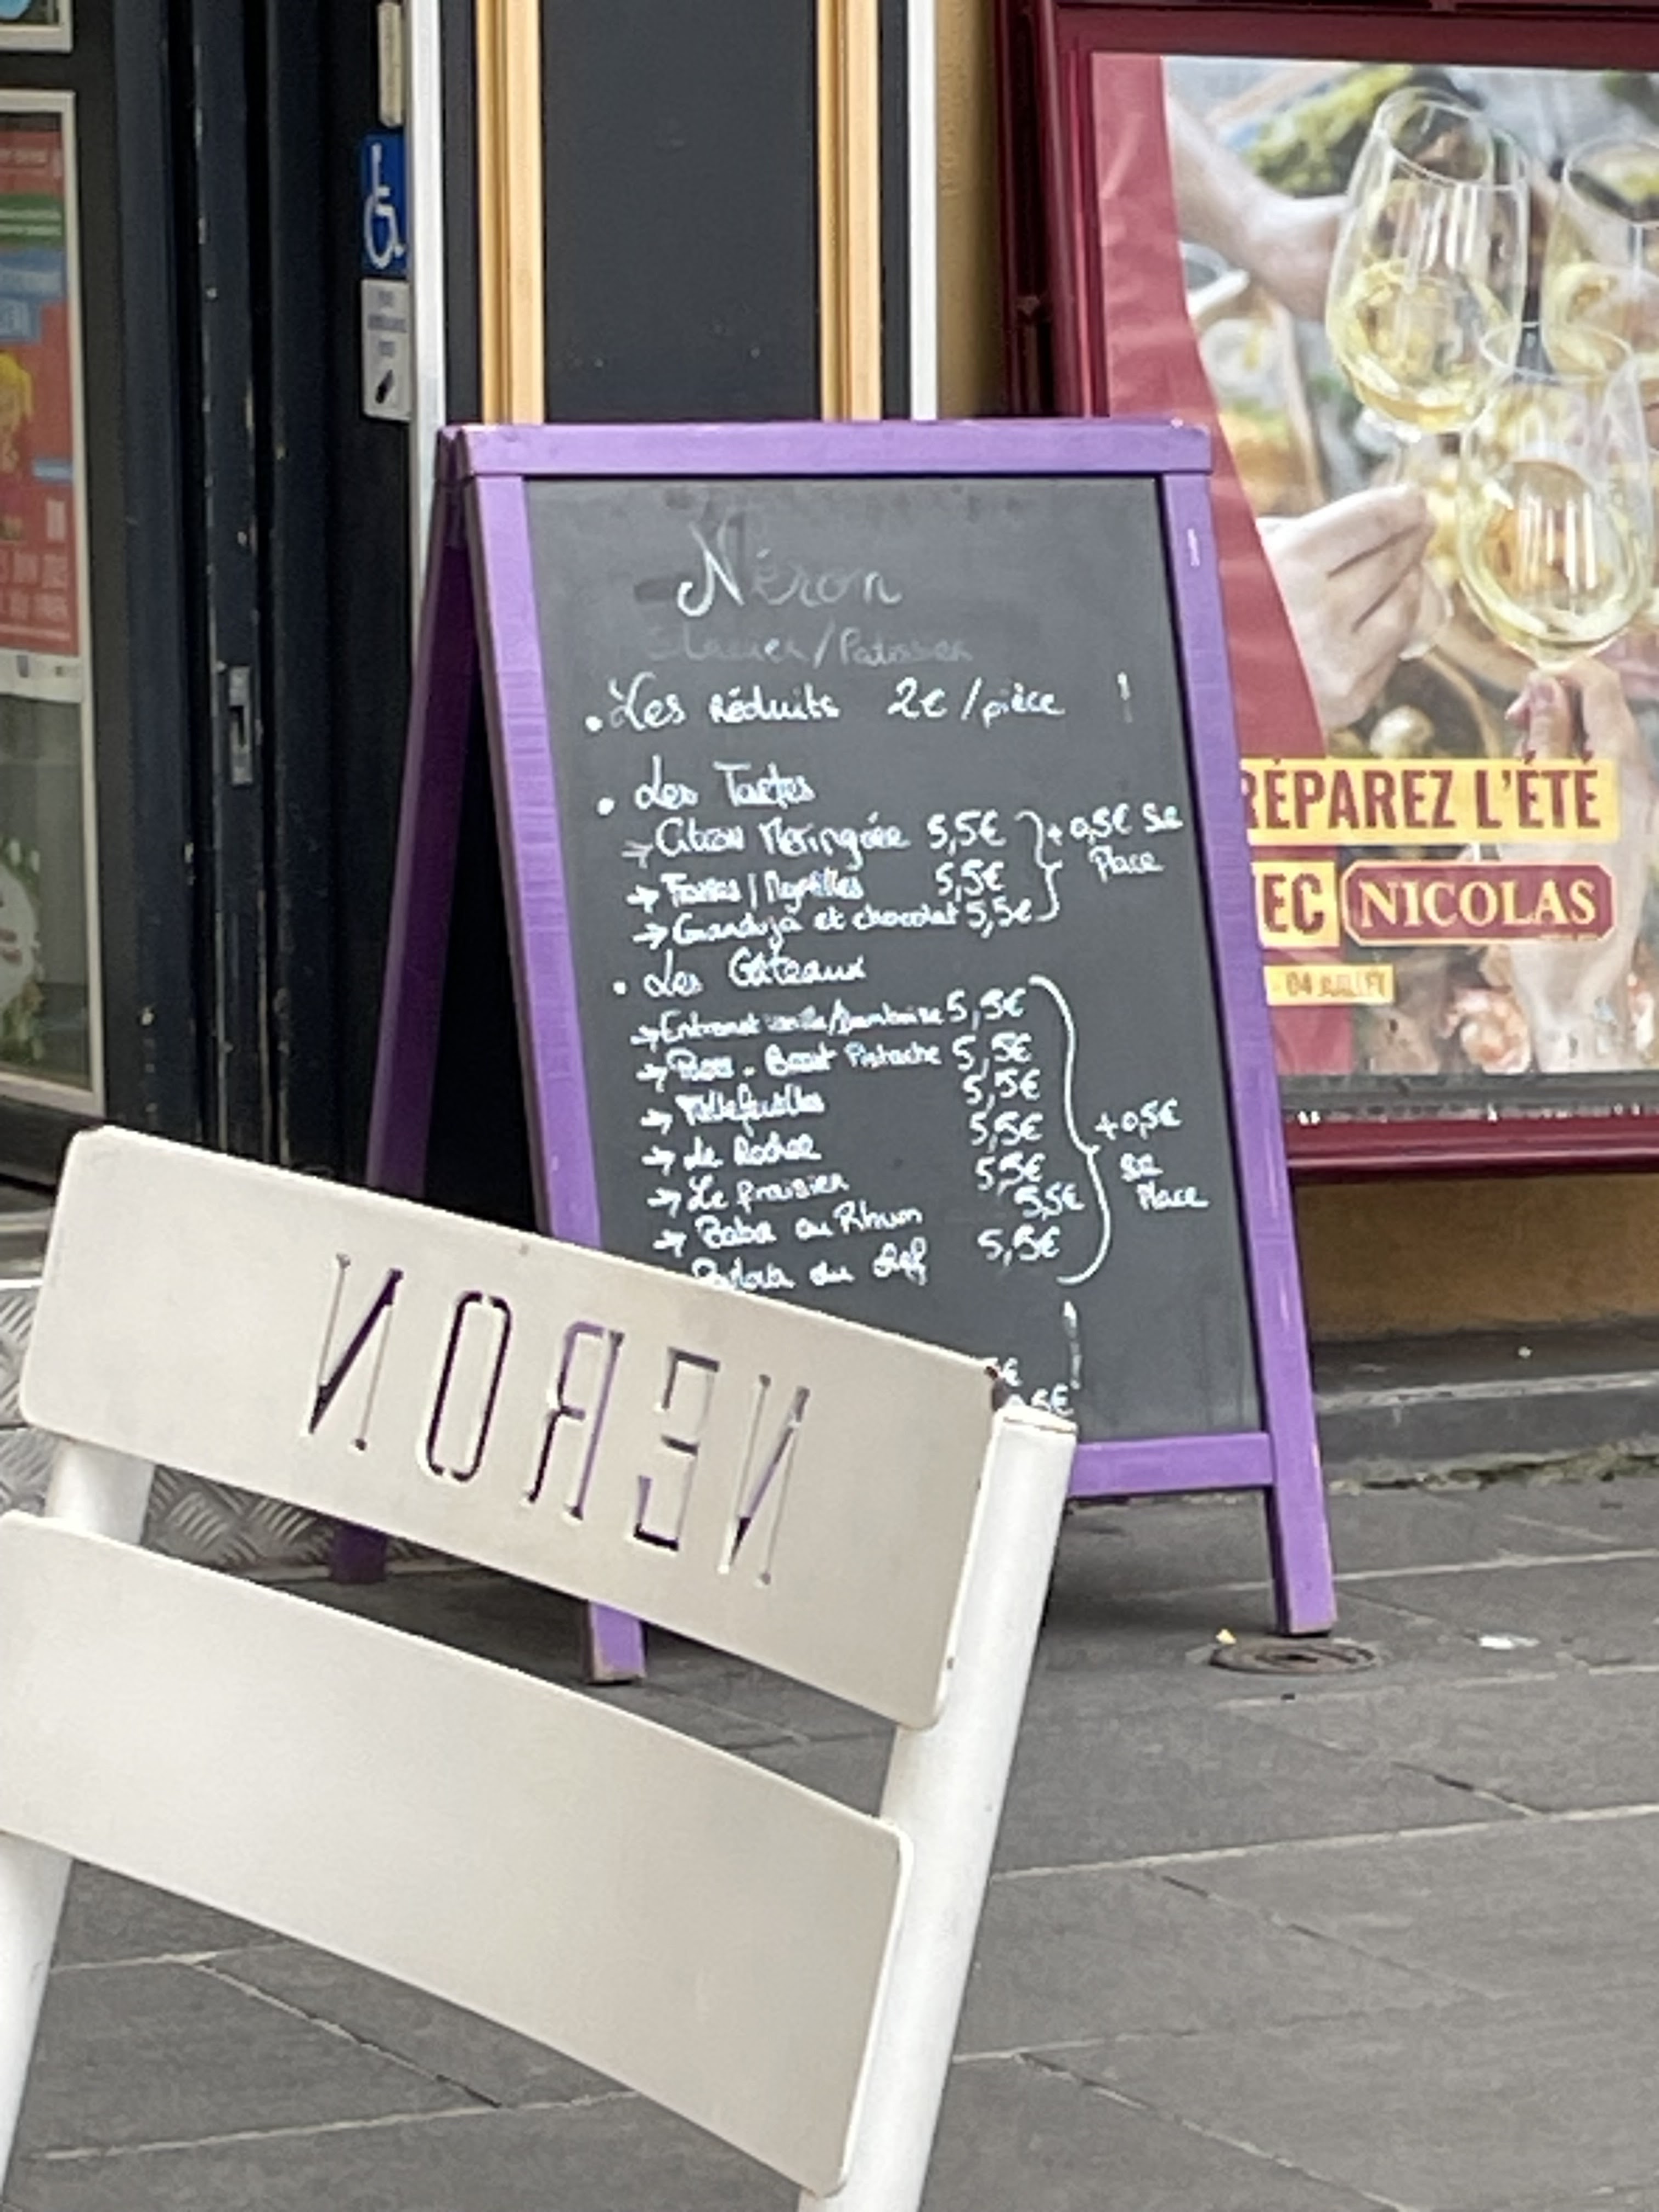 Néron
Glacier/Patissier
• Les réduits 2€/pièce
• Les Tartes
→ Citron Meringuée 5,5€ + 0,5€ Sr
Place
→ Fraises / Myrtilles 5,5€
→ Gianduja et chocolat 5,5€
• Les Gâteaux
→ Entremet vanille/framboise 5,5€
→ Pistache 5,5€
→ Millefeuilles 5,5€
→ Le Rocher 5,5€
→ Le fraisier 5,5€
→ Baba au Rhum 5,5€
du 5,5€
+ 0,5€
Sr
Place
NERON
RÉPAREZ L'ÉTÉ
EC NICOLAS
04 JUILLET